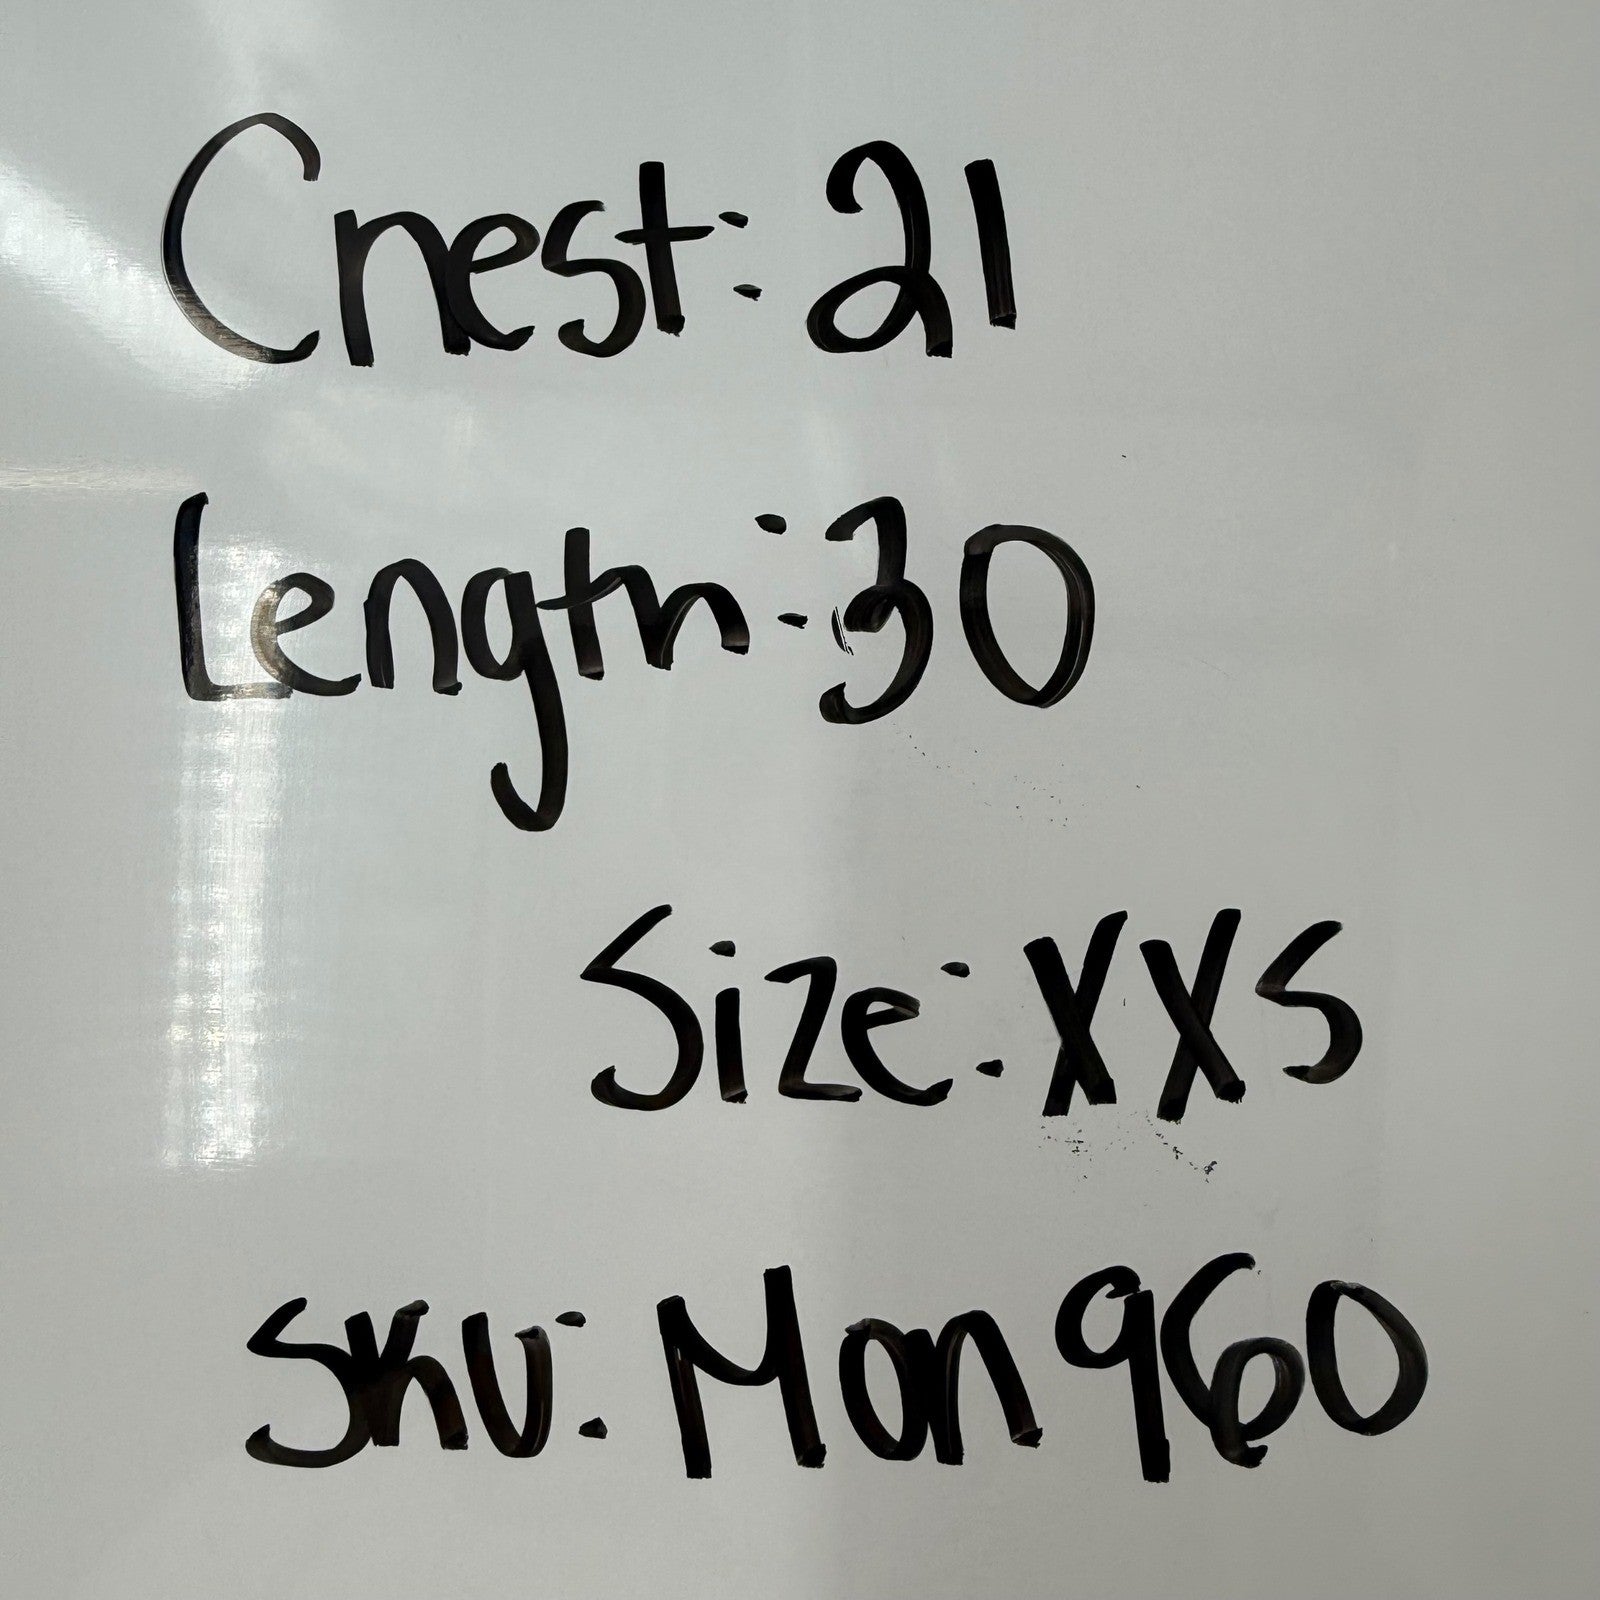 Chest: 21
Length: 30
Size: XXS
SKU: Mon960